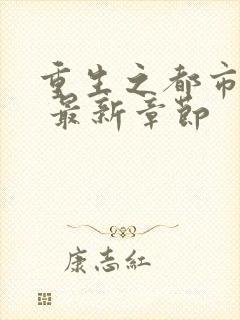 重生之都市
最新章節
康志紅